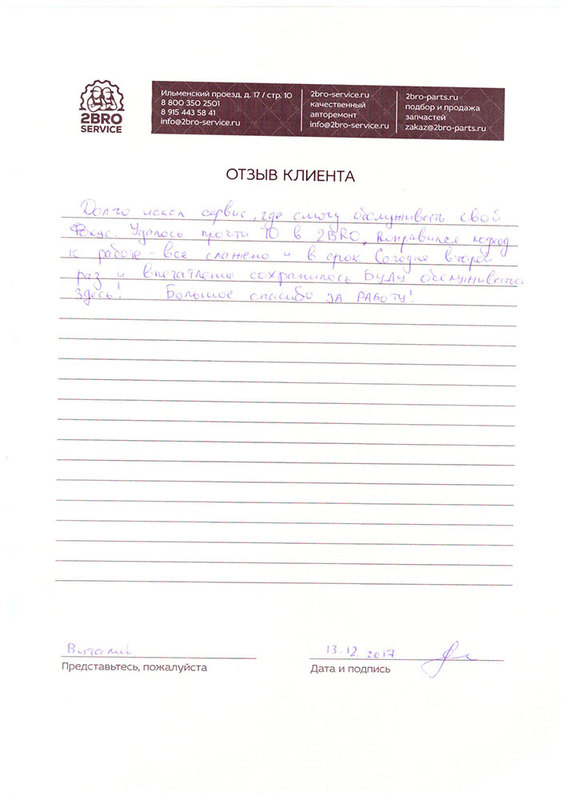 2BRO
SERVICE
Ильменский проезд, д. 17 / стр. 10
8 800 350 2501
8 915 443 58 41
info@2bro-service.ru
2bro-service.ru
качественный
авторемонт
info@2bro-service.ru
2bro-parts.ru
подбор и продажа
запчастей
zakaz@2bro-parts.ru
ОТЗЫВ КЛИЕНТА
Долго искал сервис, где смогу обслуживать свой
Фокус. Удалось пройти ТО в 2BRO, понравился подход
к работе - все слажено и в срок Сегодня второй
раз и впечатление сохранилось Буду обслуживаться
здесь! Большое спасибо за работу!
Виталий
13.12.2017
Представьтесь, пожалуйста
Дата и подпись